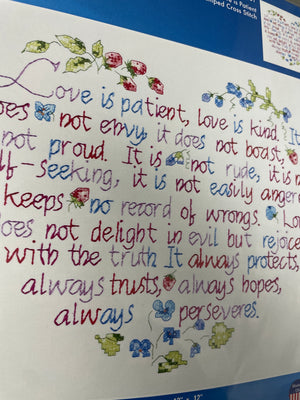 is Patient
Stamped Cross Stitch
Love is patient, love is kind. It
does not envy, it does not boast,
not proud. It is not rude, it is n
lf-seeking, it is not easily anger
keeps no record of wrongs. Lo
does not delight in evil but rejoice
with the truth It always protects,
always trusts, always hopes,
always perseveres.
12"